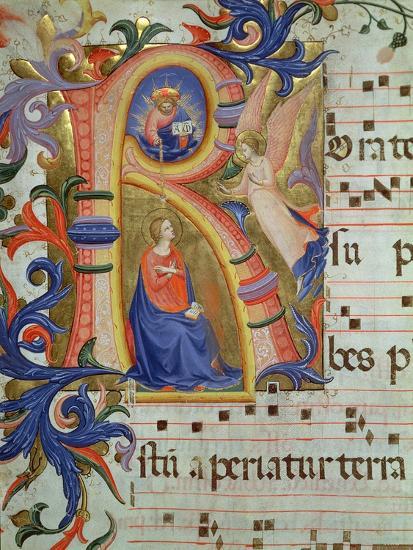 R orate
su p
bes p
stū aperiatur terra